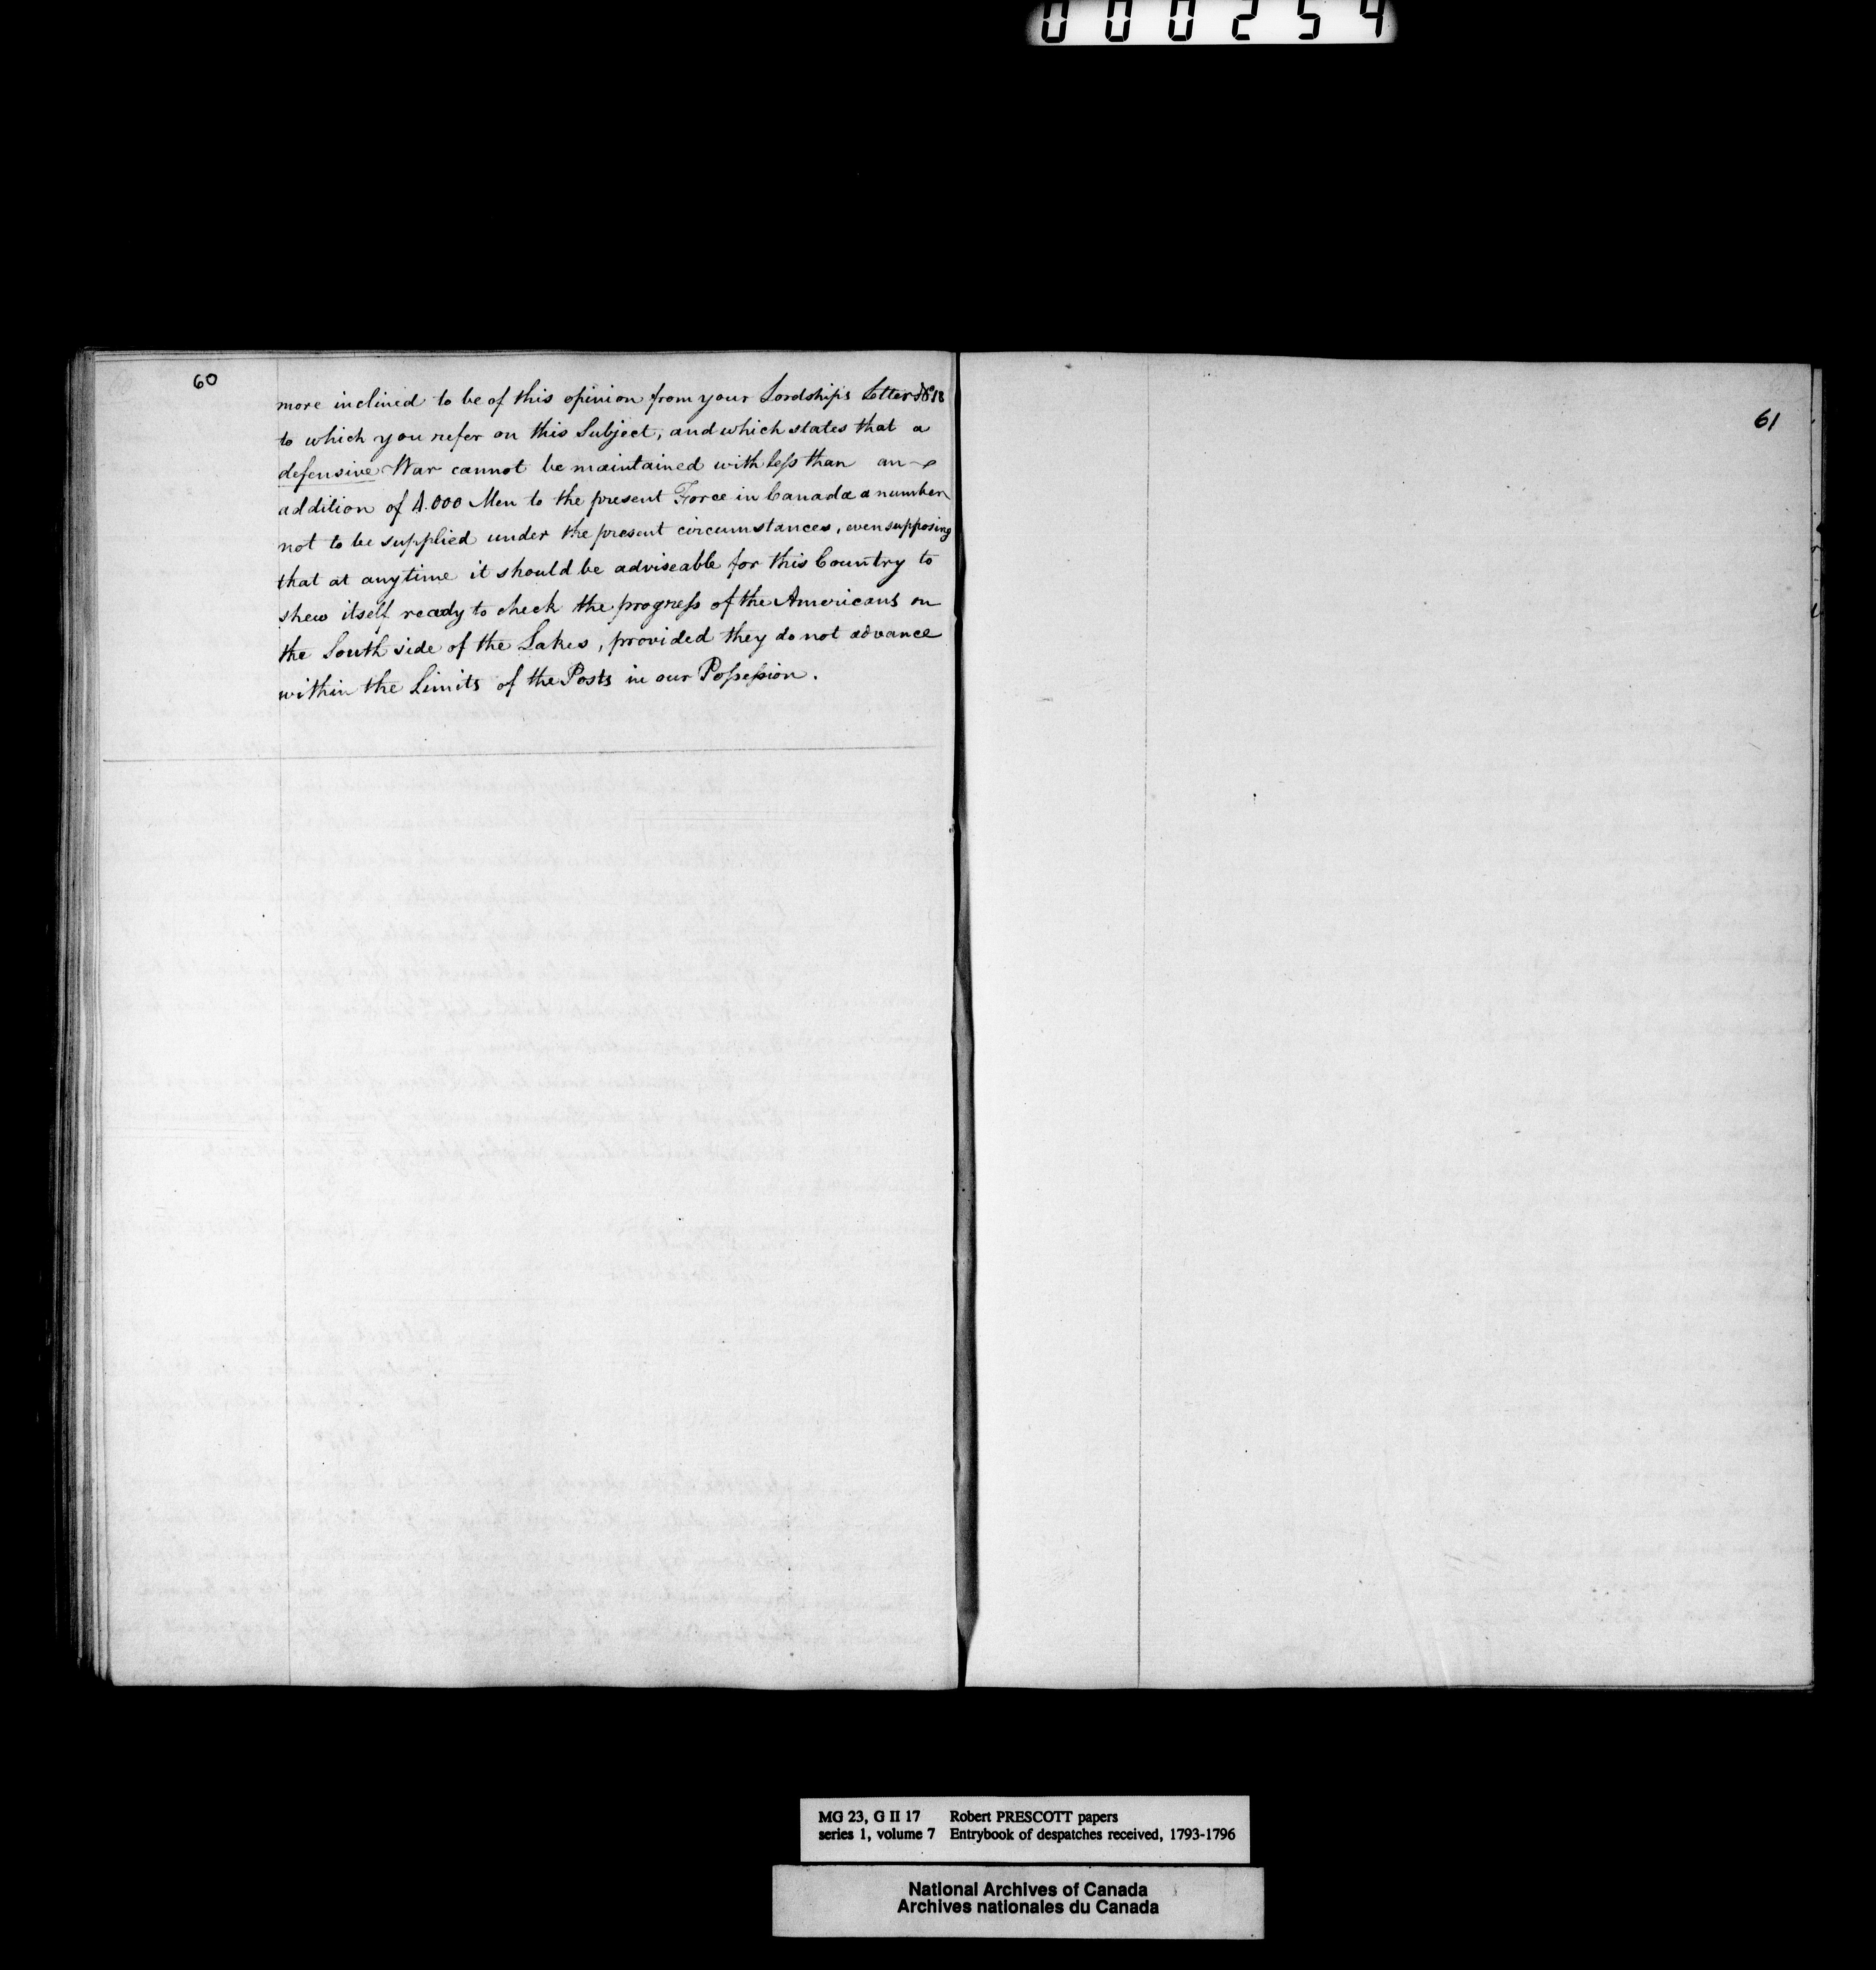 000254
60
more inclined to be of this opinion from your Lordships Letter No 18
to which you refer on this Subject, and which states that a
defensive War cannot be maintained with less than an
addition of 4.000 Men to the present Force in Canada a number
not to be supplied under the present circumstances, even supposing
that at anytime it should be adviseable for this Country to
shew itself ready to check the progress of the Americans on
the South side of the Lakes, provided they do not advance
within the Limits of the Posts in our Possession.
61
MG 23, G II 17 Robert PRESCOTT papers
series 1, volume 7 Entrybook of despatches received, 1793-1796
National Archives of Canada
Archives nationales du Canada